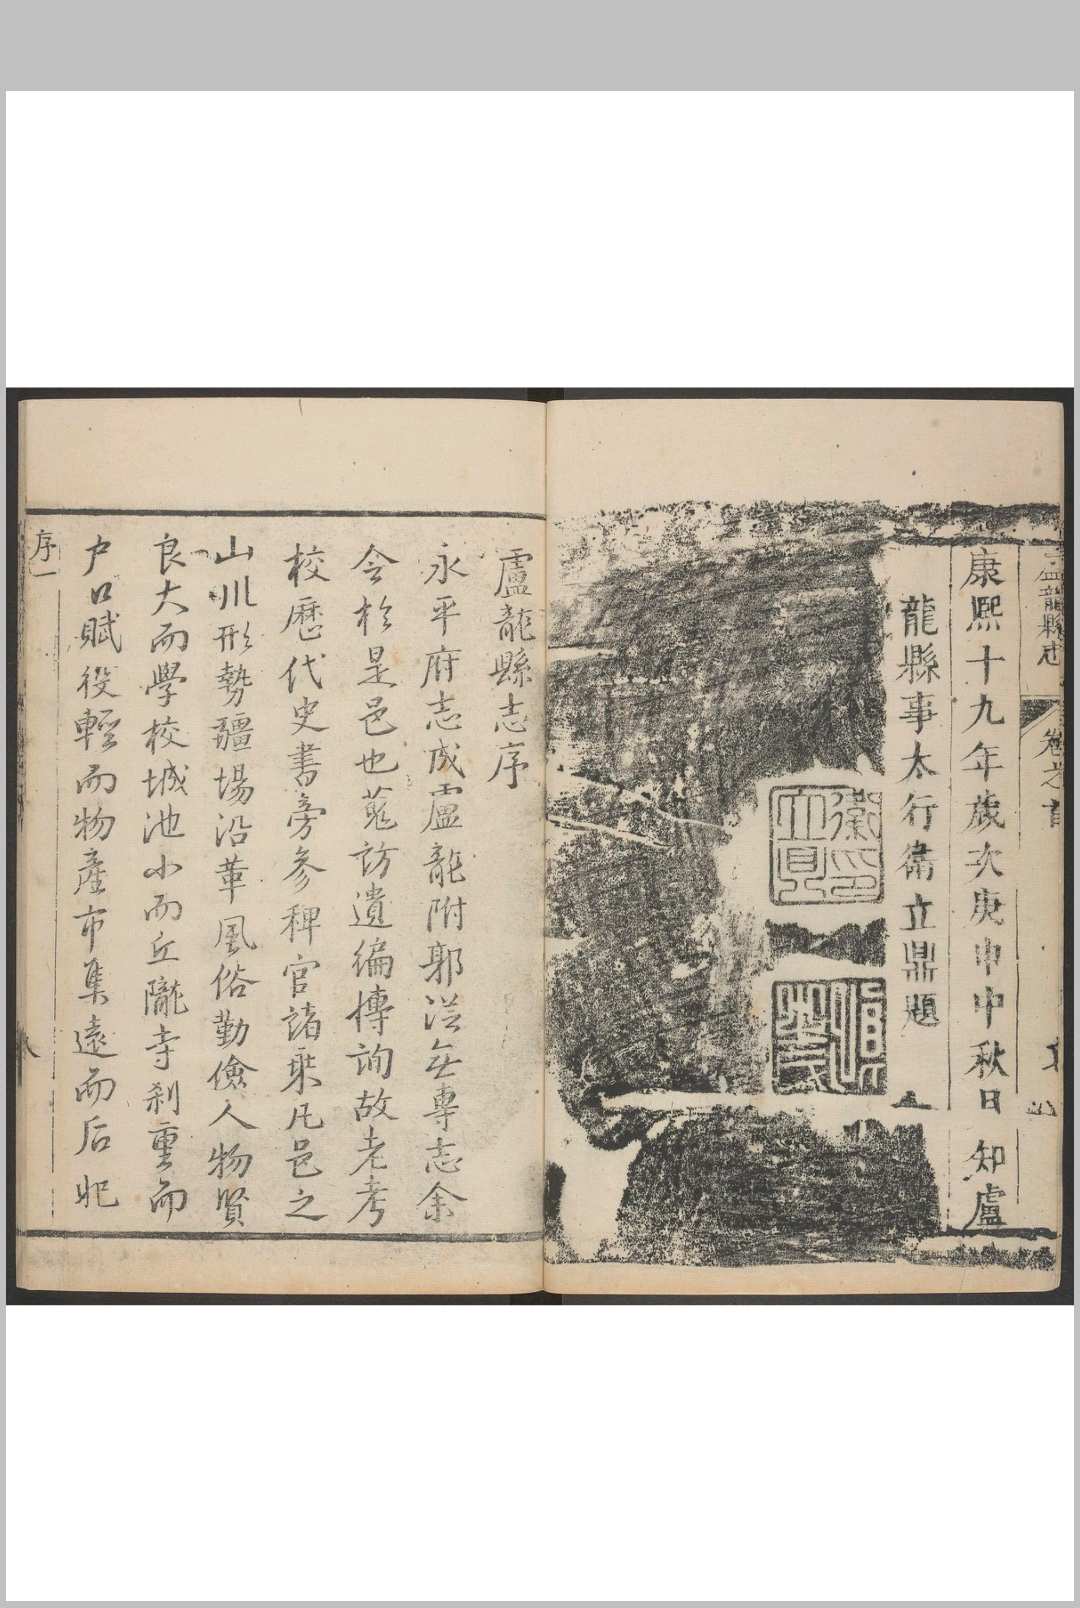 盧龍縣志
卷之首
康熙十九年歲次庚申中秋日知盧
龍縣事太行衛立鼎題
衛立鼎印
盧龍縣志序
永平府志成盧龍附郭從無專志余
令於是邑也蒐訪遺編摶詢故老考
校歷代史書旁參稗官諸乘凡邑之
山川形勢疆場沿革風俗勤儉人物賢
良大而學校城池小而丘隴寺刹重而
户口賦役輕而物產市集遠而后妃
序一